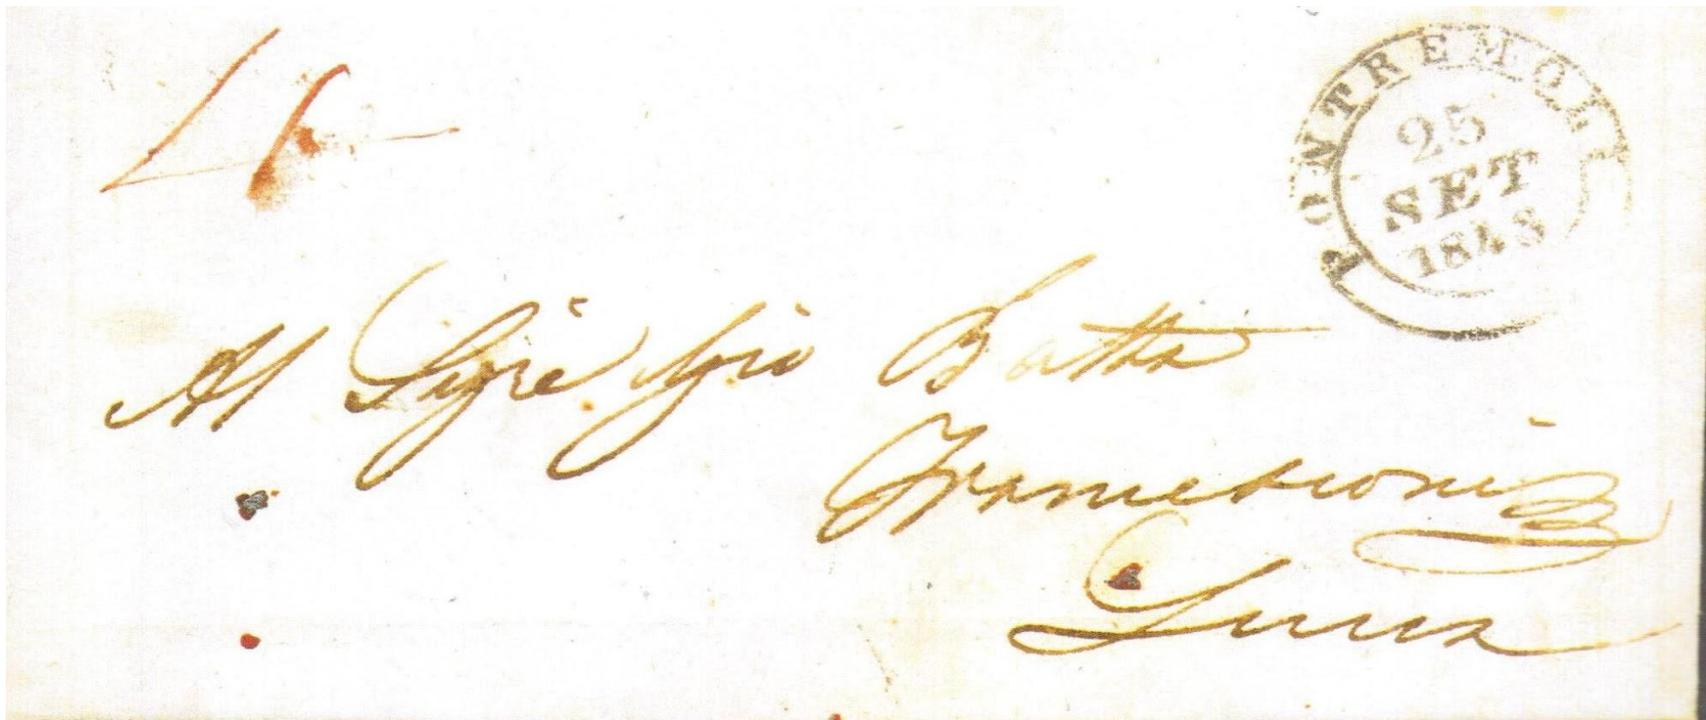 4
PONTREMOLI
25
SET
1848
Al Sig.re Gio Batta
Franceschoni
Lucca